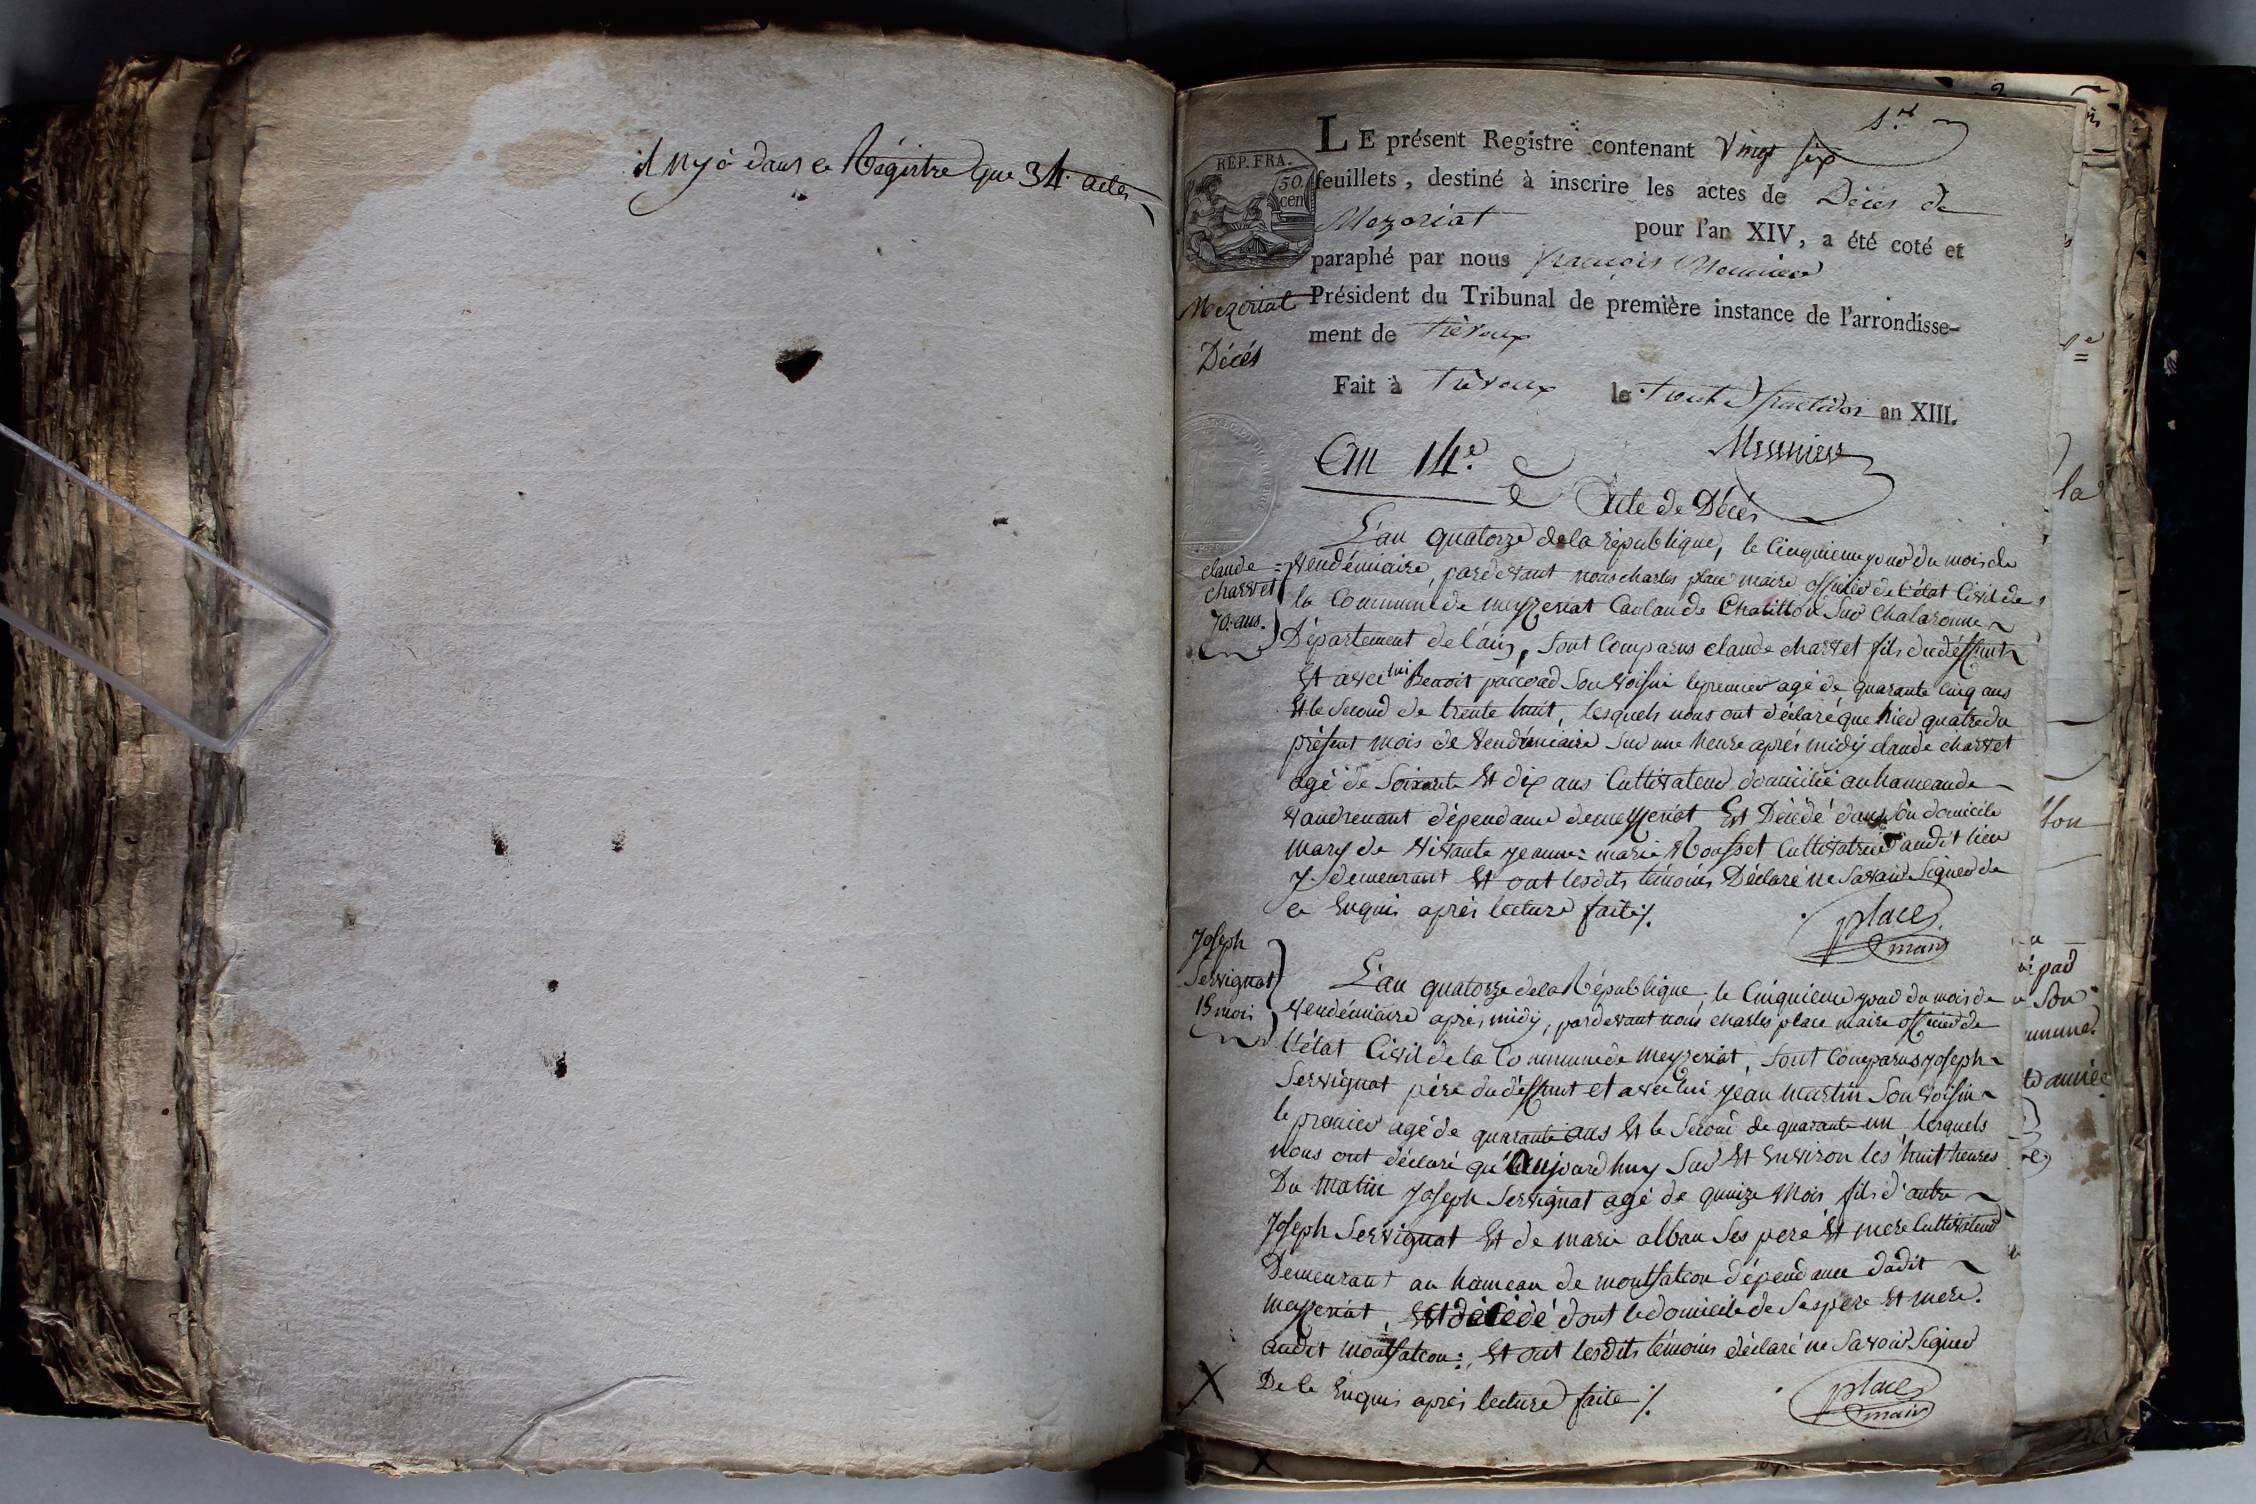 il n'y à dans ce Régistre que 34 actes
1.er
LE présent Registre contenant vingt six
feuillets, destiné à inscrire les actes de Décès de
Mezeriat pour l'an XIV, a été coté et
paraphé par nous françois Messnier
Président du Tribunal de première instance de l'arrondisse-
ment de trévoux
Fait à trévoux le trente fructidor an XIII.
RÉP. FRA.
50.
cen
Mezeriat
Décés
Messnier
An 14.e
Acte de Décés
claude
charvet
70. ans.
L'an quatorze de la république, le Cinquieme jour du mois de
Vendémiaire, pardevant nous charles place maire officier de l'état Civil de
la Commune de meyzeriat Canton de Chatillon sur Chalaronne
Département de l'ain, sont Comparus claude charvet fils du déffunt
Et avec lui Benoit paccoud son voisin le premier agé de quarante cinq ans
Et le second de trente huit, lesquels nous ont déclaré que hier quatre du
présent mois de vendémiaire sur une heure aprés midÿ claude charvet
agé de soixante Et dix ans Cultivateur domicilié au hameau de
vaudrenant dépendance de meyzeriat Est Décédé dans son domicile
mary de vivante jeanne marie Rousset Cultivatrice audit lieu
y demeurant Et ont lesdits témoins Déclaré ne savoir signer de
ce Enquis aprés lecture faite ./.
place
maire
Joseph
Servignat
15 mois
L'an quatorze de la République, le Cinquieme jour du mois de
vendémiaire aprés midÿ, pardevant nous charles place maire officier de
l'état Civil de la Commune de meyzeriat, sont Comparus joseph
Servignat père du déffunt et avec lui jean martin son voisin
le premier agé de quarante ans Et le second de quarante un lesquels
nous ont déclaré qu'aujourdhuy sur Et Environ les huit heures
Du matin joseph Servignat agé de quinze mois fils d'autre
joseph Servignat Et de marie alban ses pere Et mere Cultivateurs
Demeurant au hameau de montfalcon dépendance dudit
meyzeriat, Est décédé dans le domicile de ses pere Et mere.
audit montfalcon: Et ont lesdits témoins déclaré ne savoir signer
De Ce Enquis aprés lecture faite ./.
place
maire
X